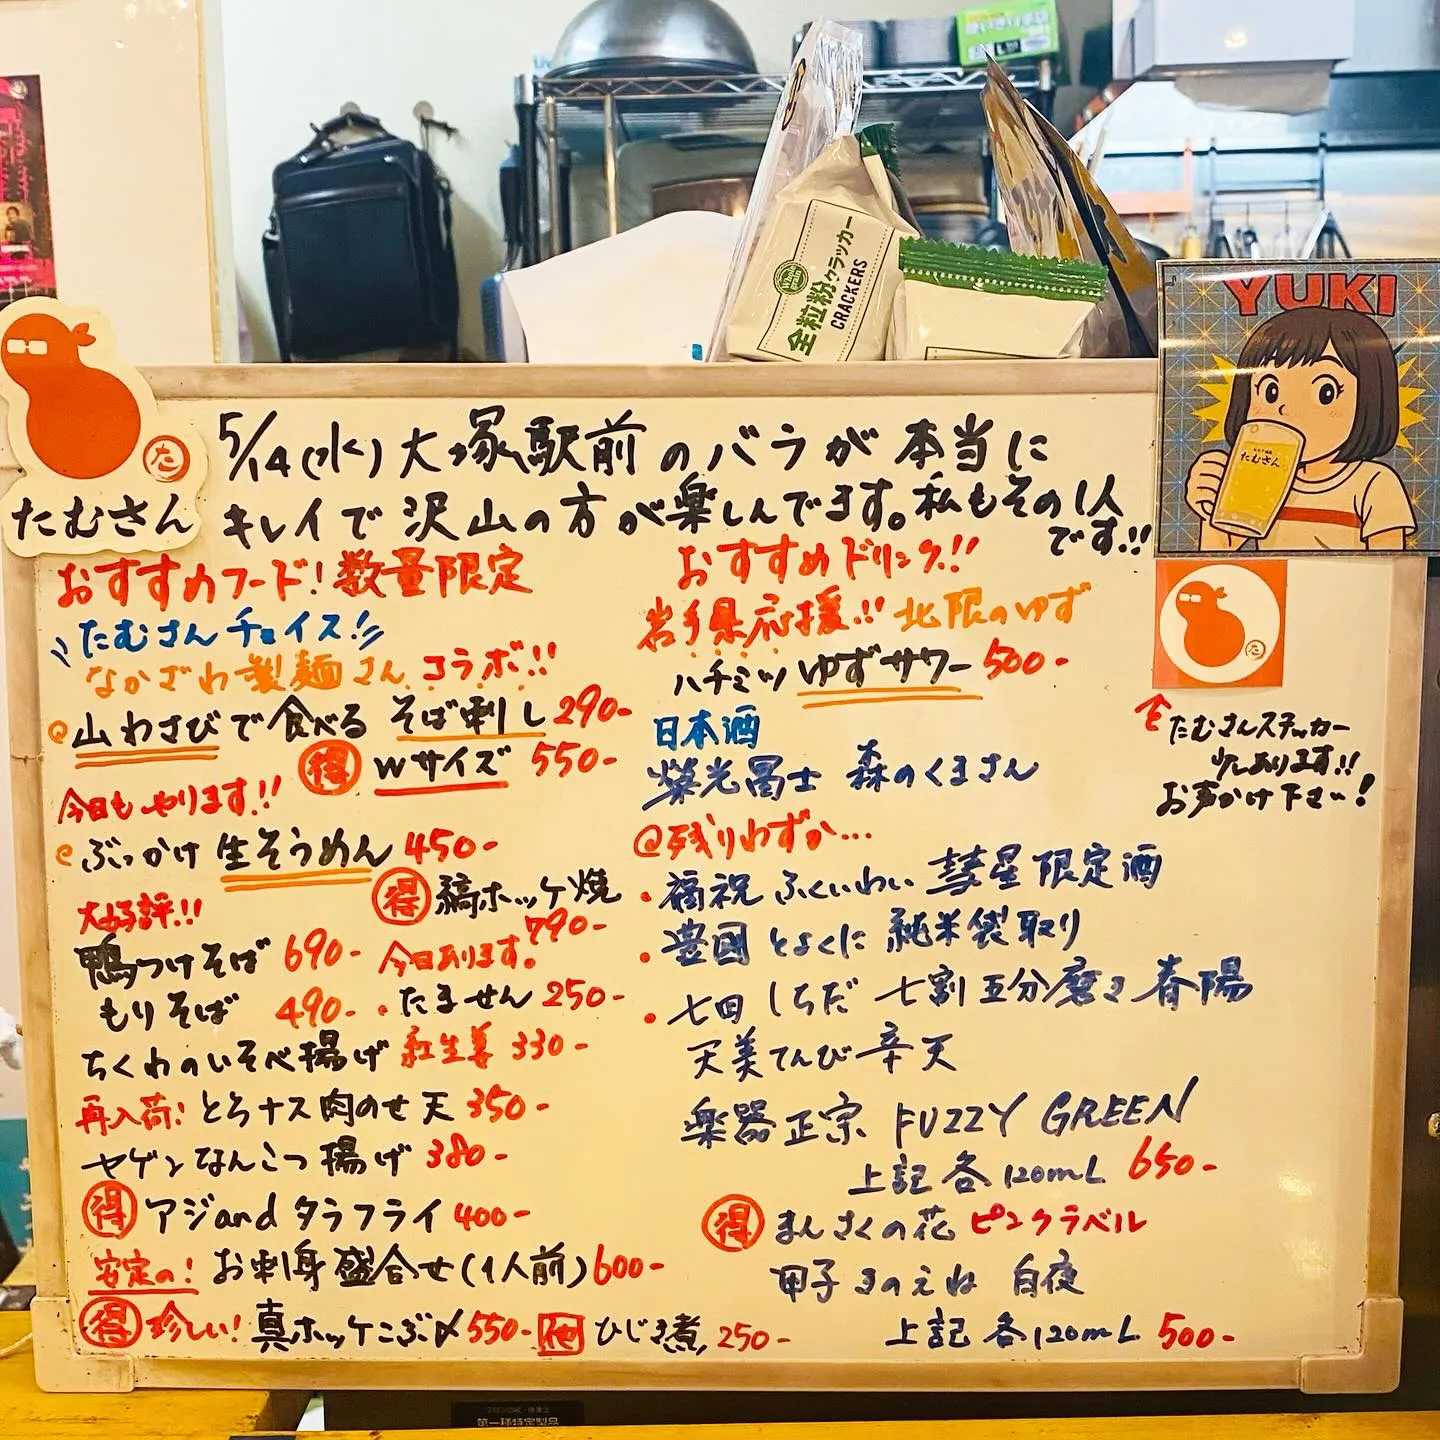 全粒粉クラッカー
CRACKERS
YUKI
たむさん
た
たむさん
5/14(水)大塚駅前のバラが本当に
キレイで沢山の方が楽しんでます。私もその1人
です!!
おすすめフード!数量限定
たむさんチョイス!
なかざわ製麺さんコラボ!!
山わさびで食べる そば刺し 290-
得 Wサイズ 550-
今日もやります!!
ぶっかけ 生そうめん 450-
得 縞ホッケ焼
790-
大好評!!
鴨つけそば 690- 今日あります。
もりそば 490- ・たません 250-
ちくわのいそべ揚げ 紅生姜 330-
再入荷!とろナス肉のせ天 350-
ヤゲンなんこつ揚げ 380-
得 アジandタラフライ 400-
安定の!お刺身盛合せ(1人前)600-
得 珍しい!真ホッケこぶ〆550- 他 ひじき煮 250-
おすすめドリンク!!
岩手県応援!!北限のゆず
ハチミツゆずサワー 500-
日本酒
榮光冨士 森のくまさん
@残りわずか...
・福祝 ふくいわい 彗星 限定酒
・豊國 とよくに 純米袋取り
・七田 しちだ 七割五分磨き 春陽
天美てんび辛天
楽器正宗 FUZZY GREEN
上記各120mL 650-
得 まんさくの花 ピンクラベル
甲子 きのえね 白夜
上記各120mL 500-
た
たむさんステッカー
少しあります!!
お声かけ下さい!
第一種特定製品